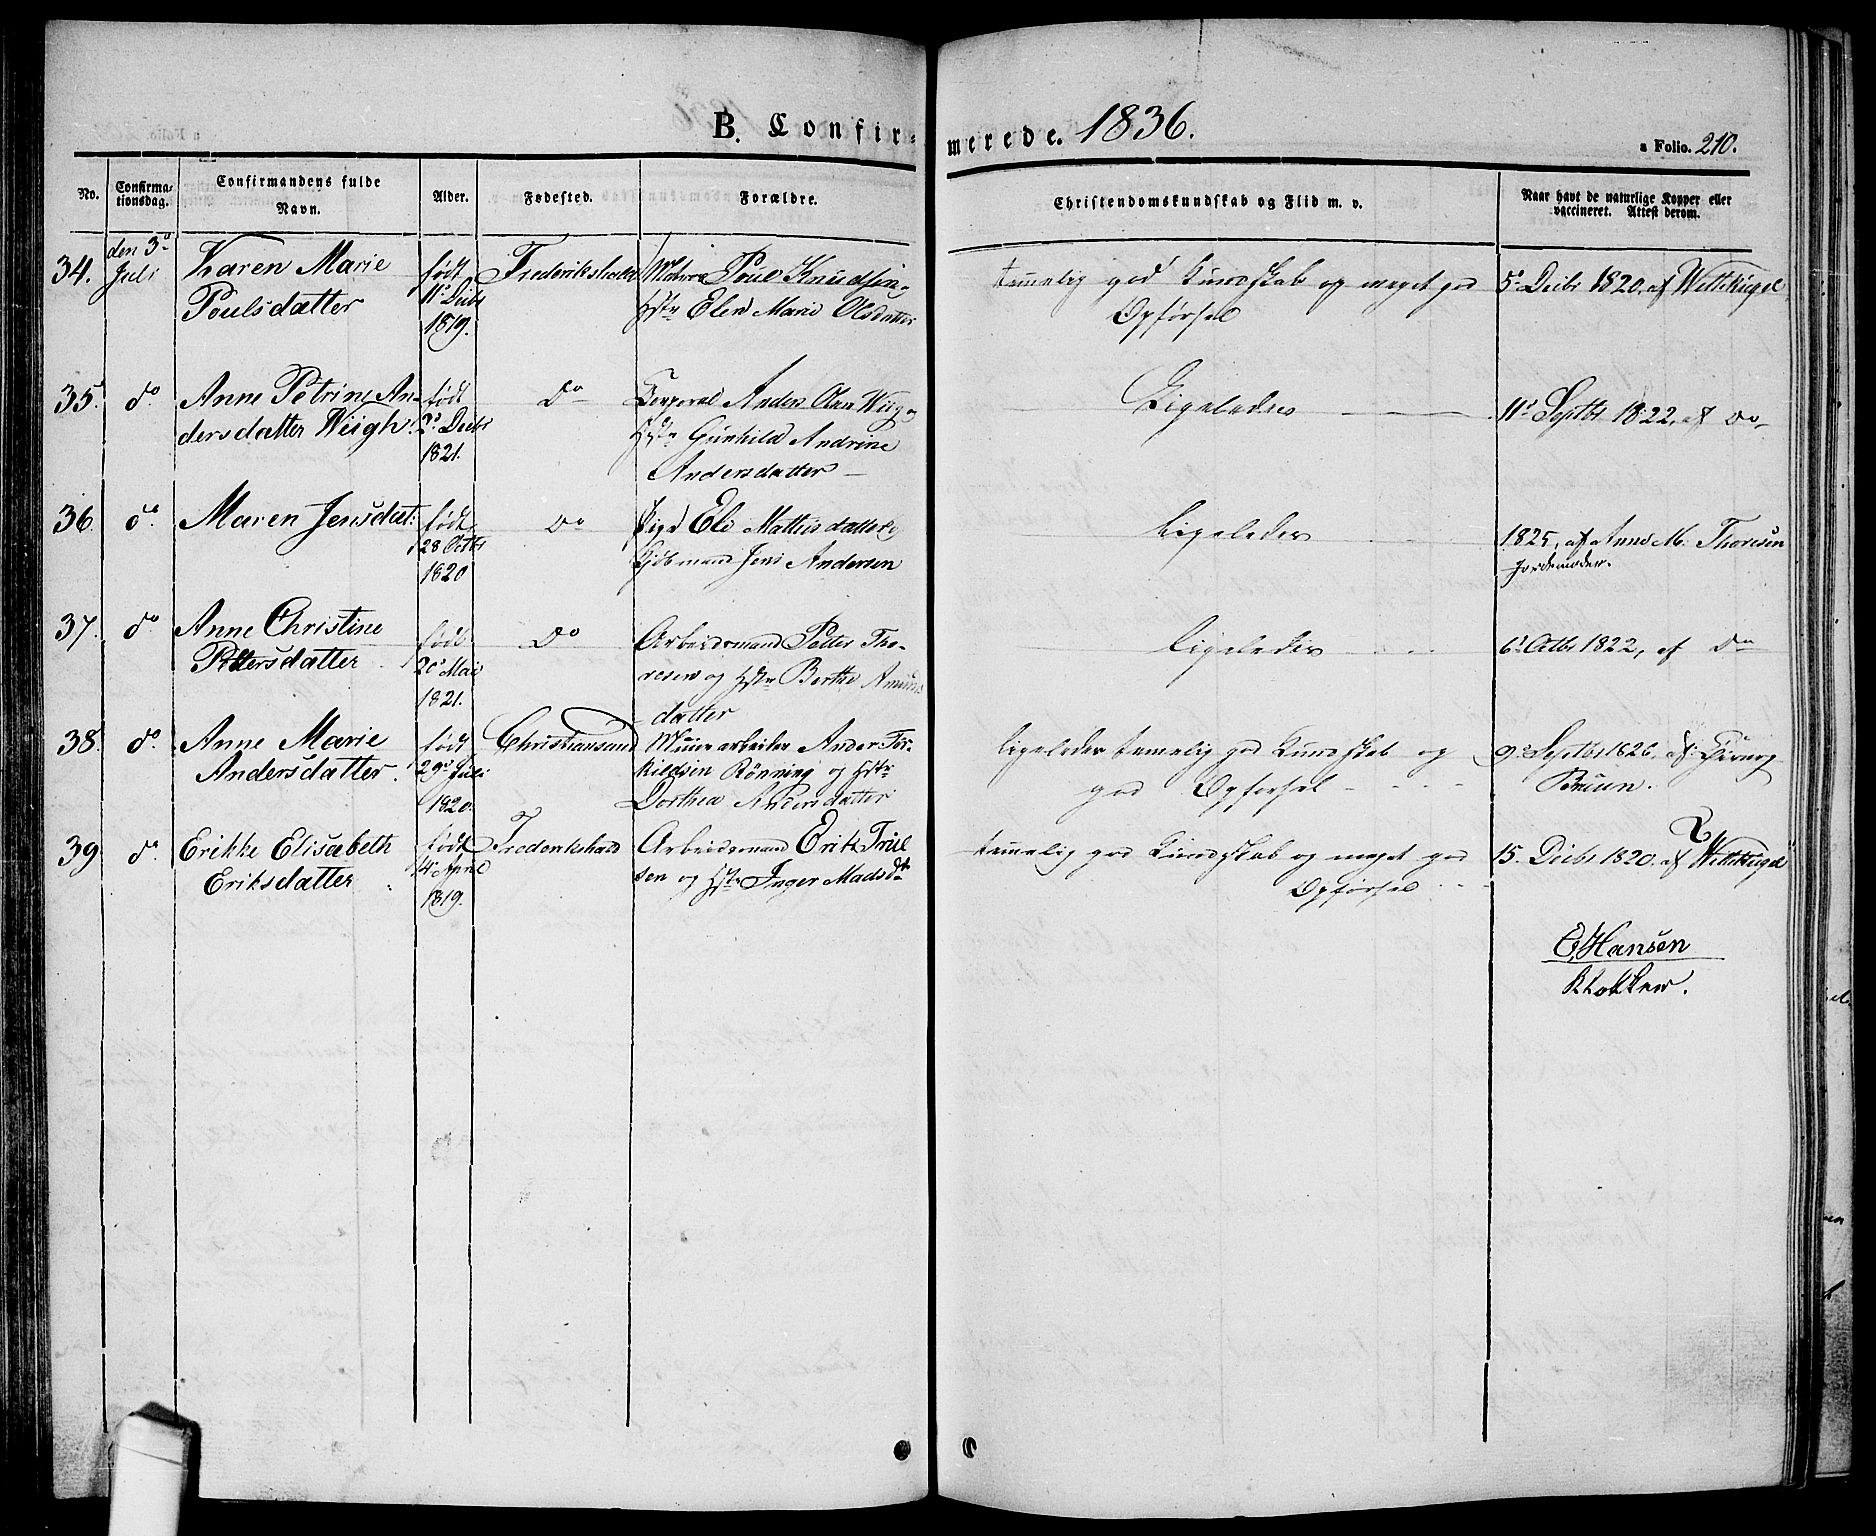 B. Confir-
merede. 1836.
a Folio. 210.
No.
Confirma-
tionsdag.
Confirmandens fulde
Navn.
Alder.
Fødested.
Forældre.
Christendomskundskab og Flid m. v.
Naar havt de naturlige Kopper eller
vaccineret. Attest derom.
34.
den 3º
Juli
Karen Marie
Poulsdatter
født
11' Decbr
1819.
Frederikshald
Matros Poul Knudsen
Hstr Elen Marie Olsdatter
temmelig god Kundskab og meget god
Opførsel
5' Decbr 1820, af Wittkugel
35.
dº
Anne Petrine An-
dersdatter Wiigh.
født
2' Decbr
1821.
Dº
Corporal Anders Olsen Wiig
Hstr Gunhild Andrine
Andersdatter
Ligeledes
11' Septbr 1822, af Do
36.
dº
Maren Jensdat:
født
28 Octbr
1820
Dº
Pige Eli Mathisdatter
Kjøbmand Jens Andersen
ligeledes
1825, af Anne M. Thoresen
Jordemoder.
37.
dº
Anne Christine
Pettersdatter
født
20' Mai
1821.
Dº
Arbeidsmand Petter Tho-
resen og Hstr Berthe Amunds
datter
ligeledes
6' Octbr 1822, af Do
38.
dº
Anne Marie
Andersdatter.
født
29' Juli
1820.
Christiansand
Muurarbeider Anders Tor-
kildsen Rönning og Hstr
Dorthea Andersdatter
ligeledes temelig god Kundskab og
god Opførsel
9' Septbr 1826, af Chirurg
Bruun.
39
dº
Erikke Elisabeth
Eriksdatter
født
14' April
1819.
Frederikshald
Arbeidsmand Erik Truel
sen og Hstr Inger Madsdtr
temelig god Kundskab og meget god
Opførsel
15. Decbr 1820. af Wittkugel
C. Hansen
Klokker.